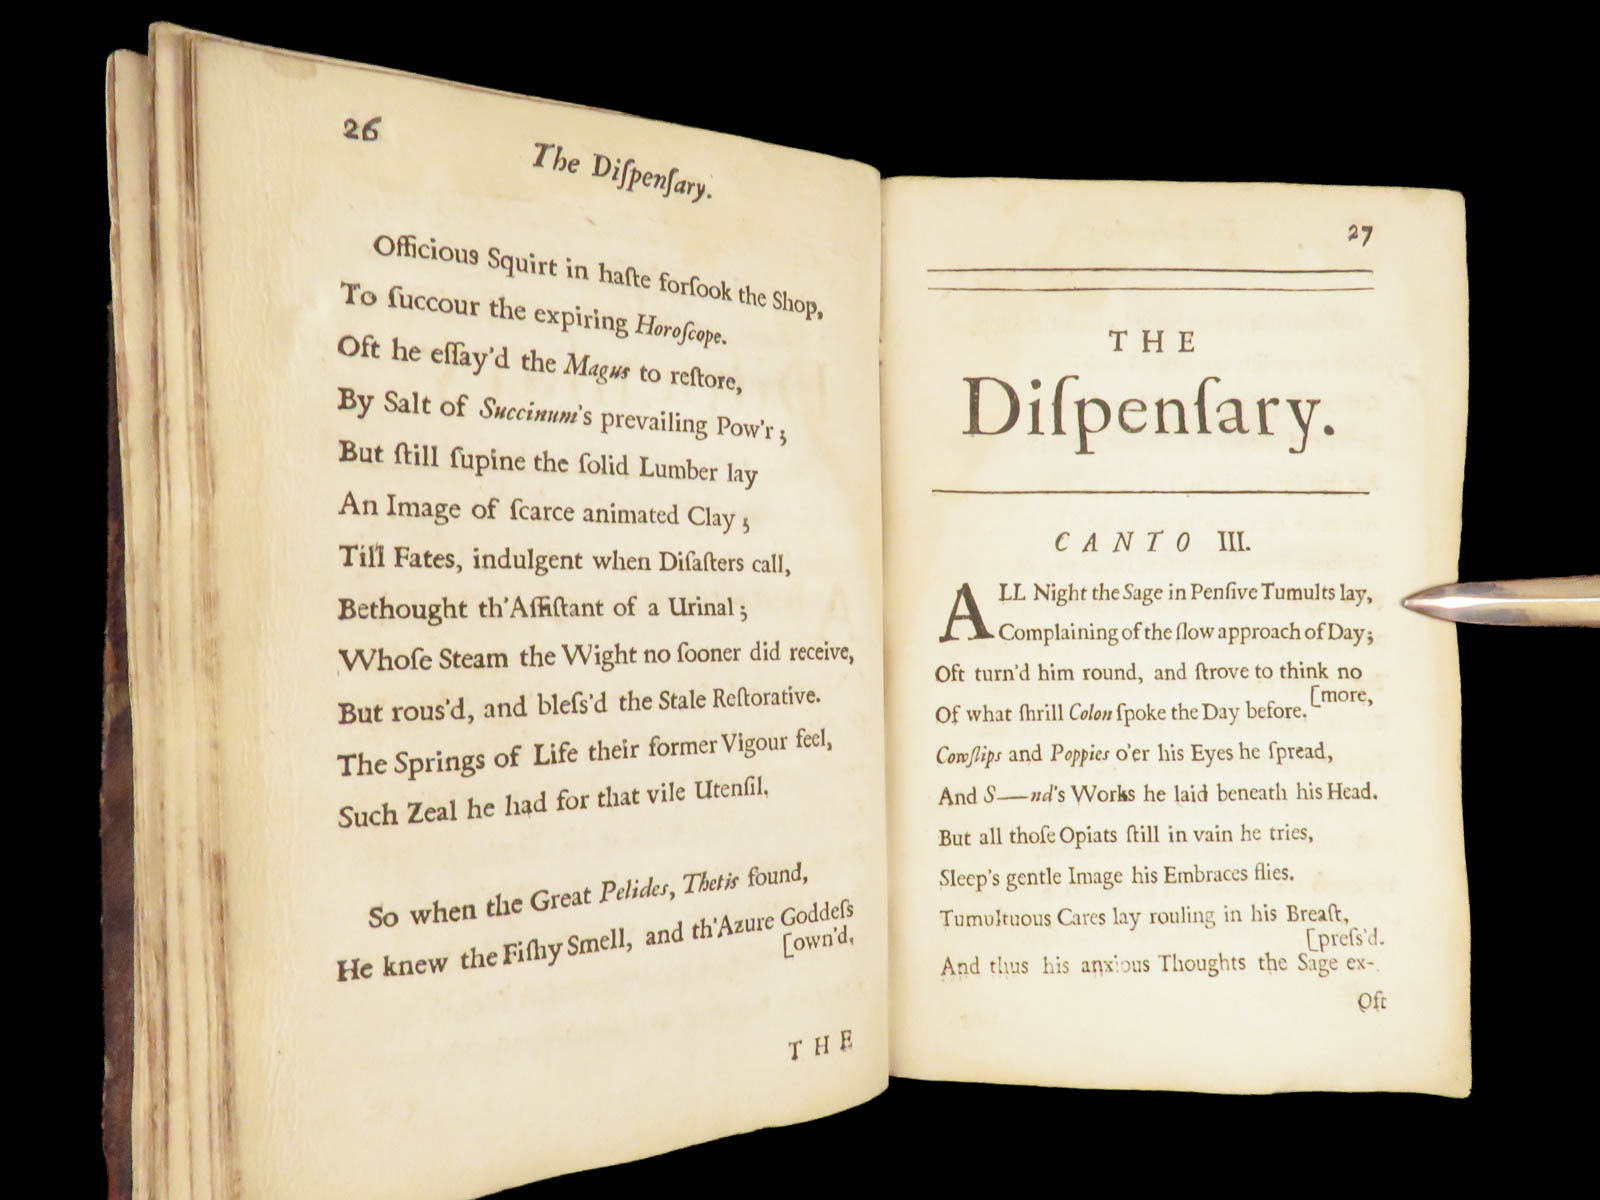 26
The Diſpenſary.
Officious Squirt in haſte forſook the Shop,
To ſuccour the expiring Horoſcope.
Oft he eſſay'd the Magus to reſtore,
By Salt of Succinum's prevailing Pow'r;
But ſtill ſupine the ſolid Lumber lay
An Image of ſcarce animated Clay;
Till Fates, indulgent when Diſaſters call,
Bethought th'Aſſiſtant of a Urinal;
Whoſe Steam the Wight no ſooner did receive,
But rous'd, and bleſs'd the Stale Reſtorative.
The Springs of Life their former Vigour feel,
Such Zeal he had for that vile Utenſil.
So when the Great Pelides, Thetis found,
He knew the Fiſhy Smell, and th'Azure Goddeſs
[own'd.
THE
27
THE
Diſpenſary.
CANTO III.
ALL Night the Sage in Penſive Tumults lay,
Complaining of the ſlow approach of Day;
Oft turn'd him round, and ſtrove to think no
[more,
Of what ſhrill Colon ſpoke the Day before.
Cowſlips and Poppies o'er his Eyes he ſpread,
And S——nd's Works he laid beneath his Head.
But all thoſe Opiats ſtill in vain he tries,
Sleep's gentle Image his Embraces flies.
Tumultuous Cares lay rouling in his Breaſt,
[preſs'd.
And thus his anxious Thoughts the Sage ex-
Oft